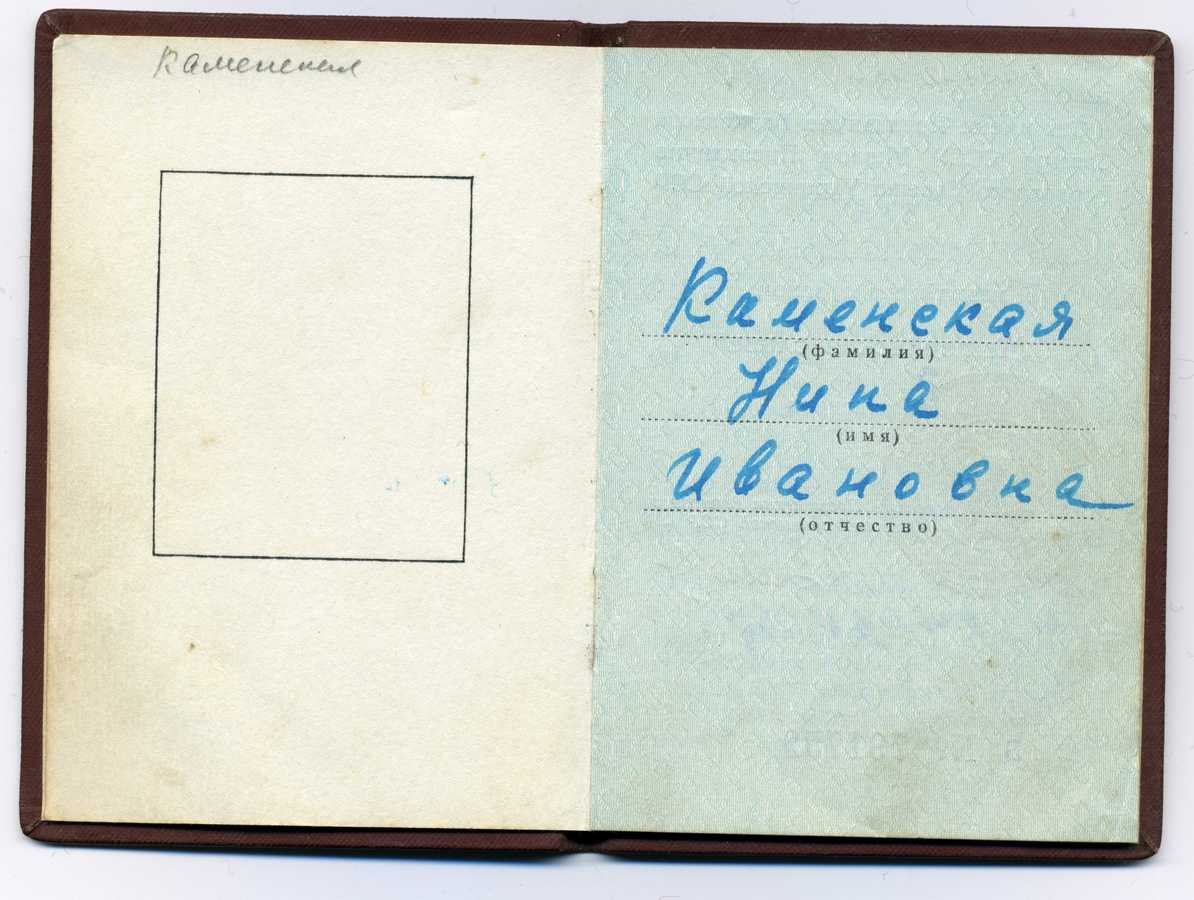 Каменская
Каменская
(фамилия)
Нина
(имя)
Ивановна
(отчество)